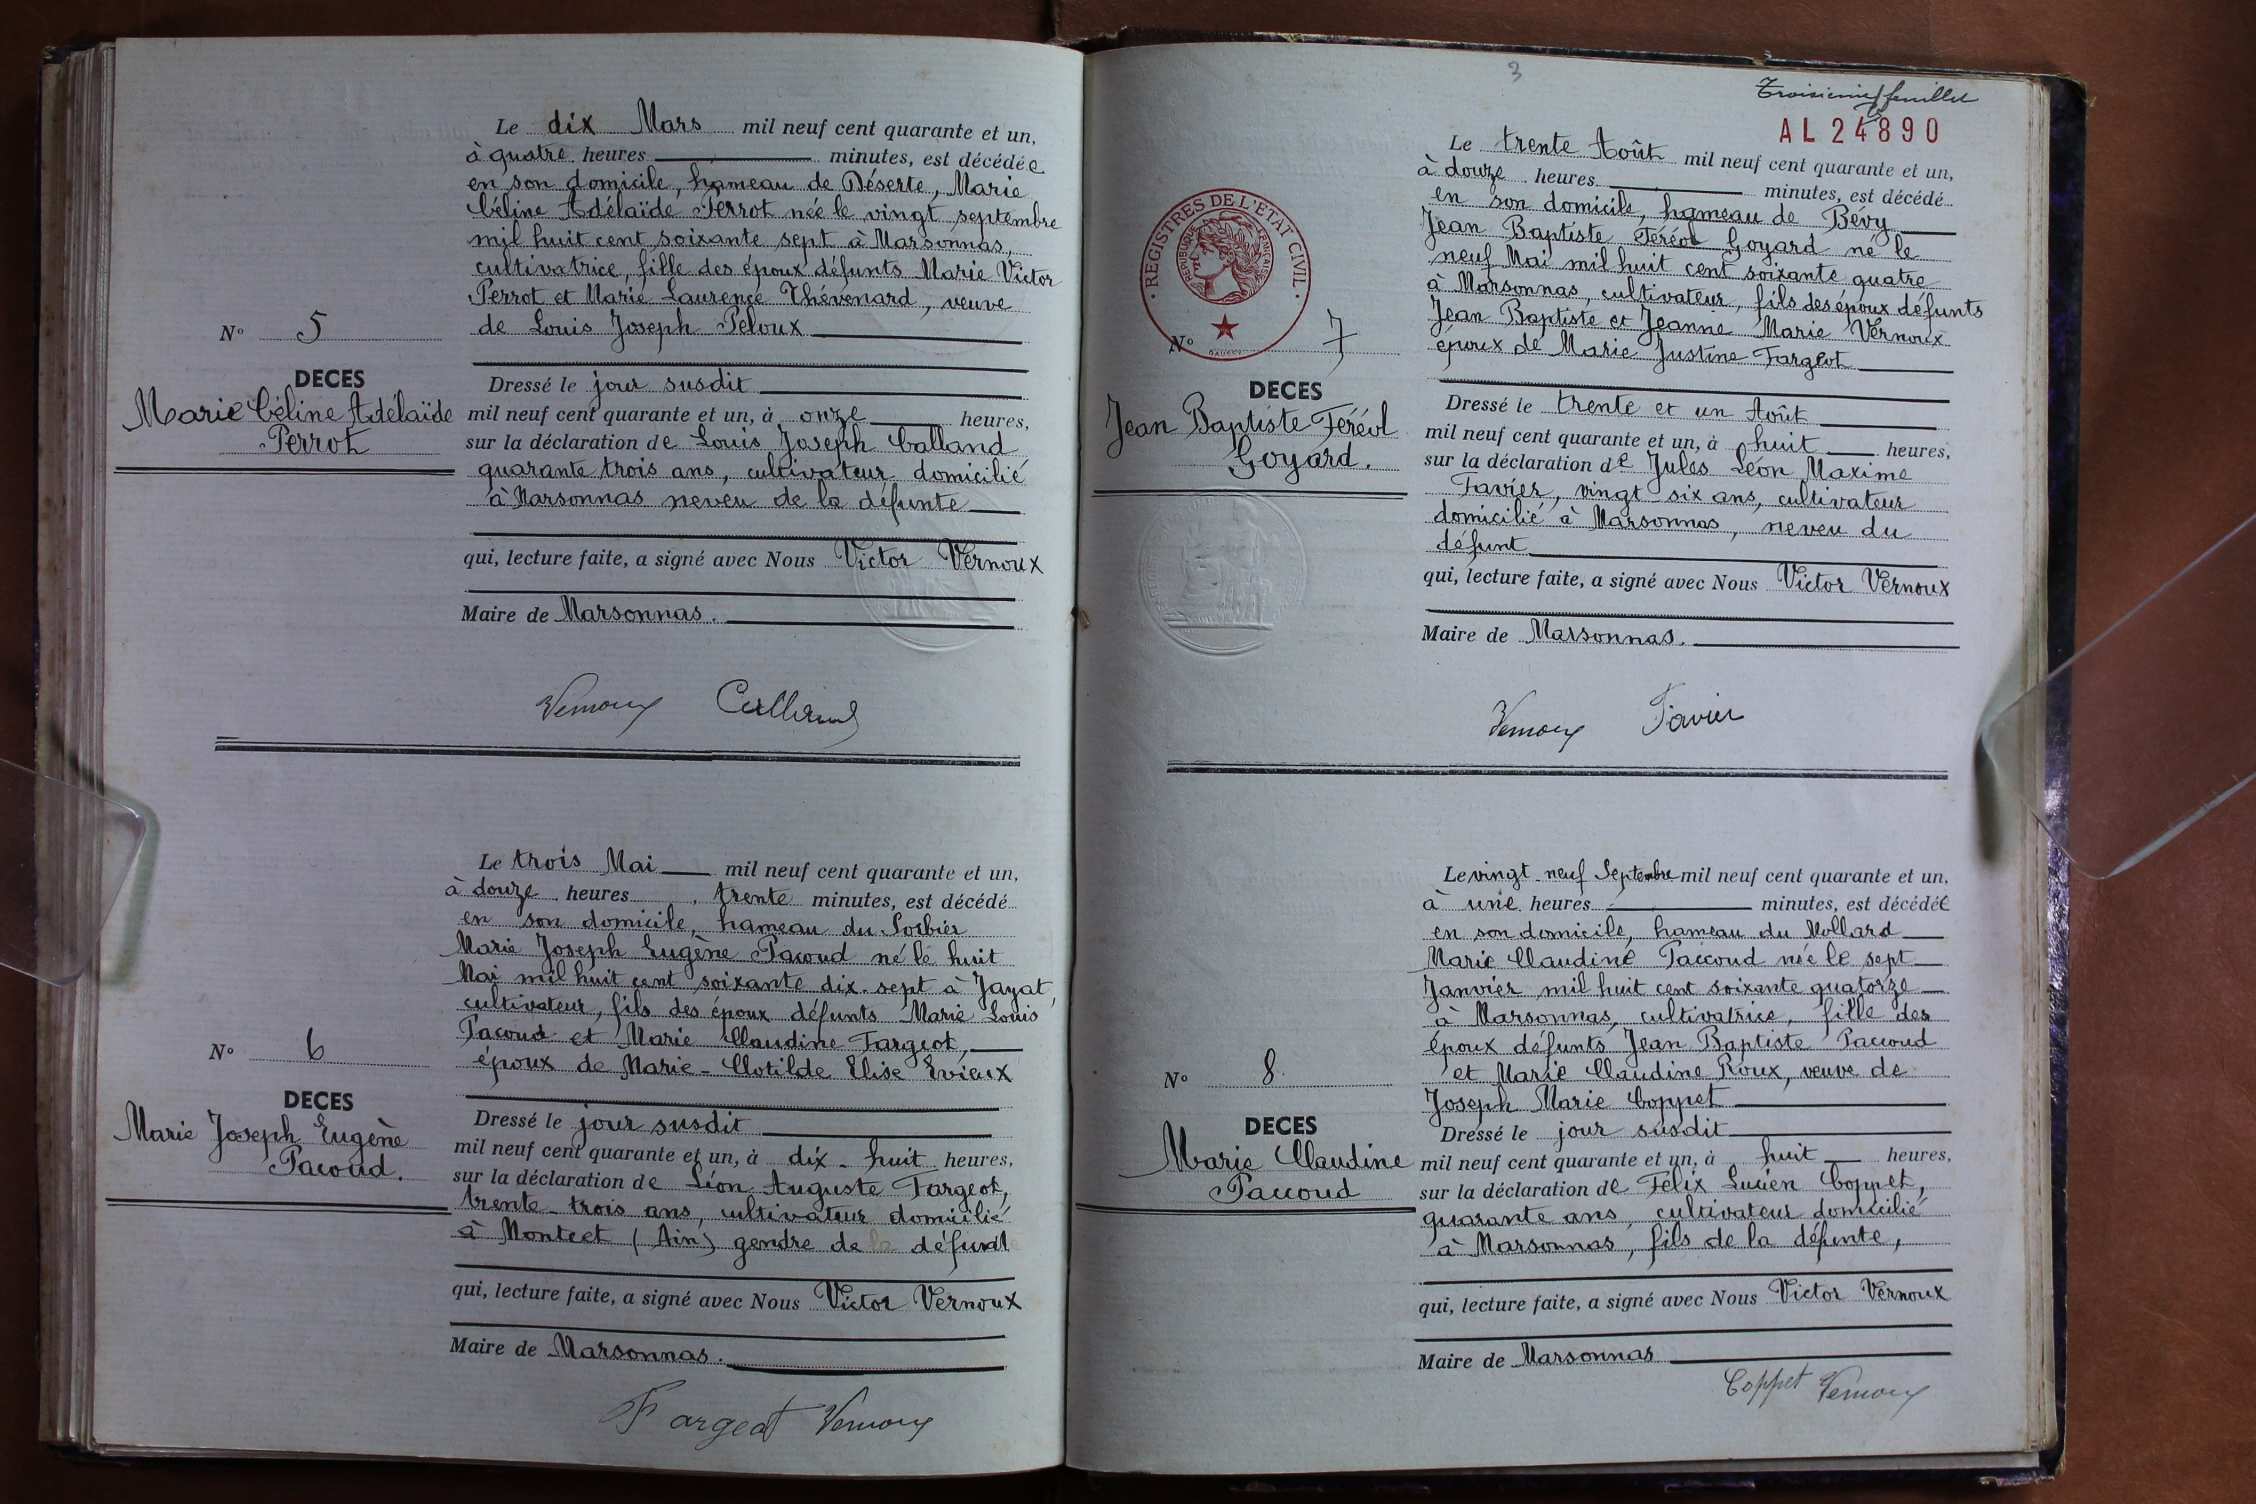 Le dix Mars mil neuf cent quarante et un,
à quatre heures minutes, est décédée
en son domicile, hameau de Déserte, Marie
Céline Adélaïde Perrot née le vingt septembre
mil huit cent soixante sept à Marsonnas,
cultivatrice, fille des époux défunts Marie Victor
Perrot et Marie Laurence Thévenard, veuve
de Louis Joseph Peloux
N° 5
DECES
Marie Céline Adélaïde
Perrot
Dressé le jour susdit
mil neuf cent quarante et un, à onze heures,
sur la déclaration de Louis Joseph Calland
quarante trois ans, cultivateur domicilié
à Marsonnas neveu de la défunte
qui, lecture faite, a signé avec Nous Victor Vernoux
Maire de Marsonnas.
Vernoux Calland
Le trois Mai mil neuf cent quarante et un,
à douze heures, trente minutes, est décédé
en son domicile, hameau du Sorbier
Marie Joseph Eugène Pacoud né le huit
Mai mil huit cent soixante dix-sept à Jayat,
cultivateur, fils des époux défunts Marie Louis
Pacoud et Marie Claudine Fargeot,
époux de Marie-Clotilde Elise Evieux
N° 6
DECES
Marie Joseph Eugène
Pacoud.
Dressé le jour susdit
mil neuf cent quarante et un, à dix-huit heures,
sur la déclaration de Léon Auguste Fargeot,
trente-trois ans, cultivateur domicilié
à Montcet (Ain) gendre de défunt
qui, lecture faite, a signé avec Nous Victor Vernoux
Maire de Marsonnas.
Fargeot Vernoux
3
Troisième feuillet
AL 24890
REGISTRES DE L'ETAT CIVIL
REPUBLIQUE FRANÇAISE
Le trente Août mil neuf cent quarante et un,
à douze heures minutes, est décédé
en son domicile, hameau de Bévy
Jean Baptiste Féréol Goyard né le
neuf Mai mil huit cent soixante quatre
à Marsonnas, cultivateur, fils des époux défunts
Jean Baptiste et Jeanne Marie Vernoux
époux de Marie Justine Fargeot
N° 7
DECES
Jean Baptiste Féréol
Goyard.
Dressé le trente et un Août
mil neuf cent quarante et un, à huit heures,
sur la déclaration de Jules Léon Maxime
Favier, vingt six ans, cultivateur
domicilié à Marsonnas, neveu du
défunt
qui, lecture faite, a signé avec Nous Victor Vernoux
Maire de Marsonnas.
Vernoux Favier
Le vingt-neuf Septembre mil neuf cent quarante et un,
à une heures minutes, est décédée
en son domicile, hameau du Mollard
Marie Claudine Paccoud née le sept
Janvier mil huit cent soixante quatorze
à Marsonnas, cultivatrice, fille des
époux défunts Jean Baptiste Paccoud
et Marie Claudine Roux, veuve de
Joseph Marie Coppet
N° 8
DECES
Marie Claudine
Paccoud
Dressé le jour susdit
mil neuf cent quarante et un, à huit heures,
sur la déclaration de Félix Lucien Coppet,
quarante ans, cultivateur domicilié
à Marsonnas, fils de la défunte,
qui, lecture faite, a signé avec Nous Victor Vernoux
Maire de Marsonnas
Coppet Vernoux